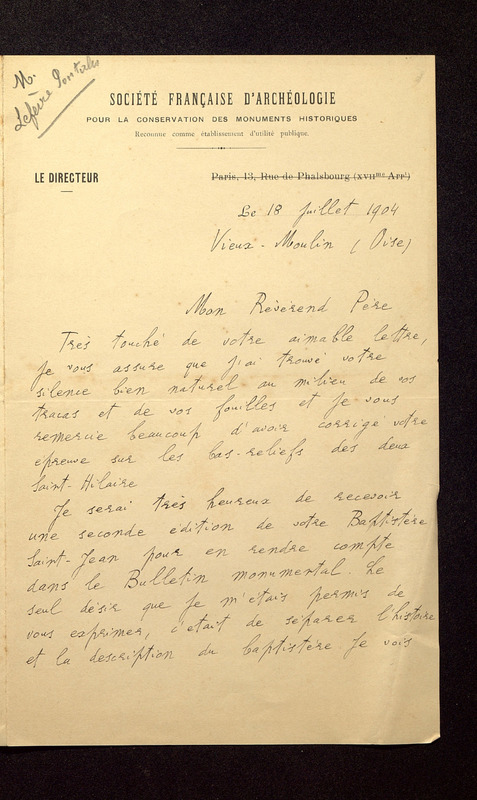 M.
Lefèvre Pontalis
SOCIÉTÉ FRANÇAISE D'ARCHÉOLOGIE
POUR LA CONSERVATION DES MONUMENTS HISTORIQUES
Reconnue comme établissement d'utilité publique.
LE DIRECTEUR
Paris, 13, Rue de Phalsbourg (XVIIme Arrt)
Le 18 Juillet 1904
Vieux-Moulin (Oise)
Mon Révérend Père
Très touché de votre aimable lettre,
je vous assure que j'ai trouvé votre
silence bien naturel au milieu de vos
tracas et de vos fouilles et je vous
remercie beaucoup d'avoir corrigé votre
épreuve sur les bas-reliefs des deux
Saint-Hilaire
Je serai très heureux de recevoir
une seconde édition de votre Baptistère
Saint-Jean pour en rendre compte
dans le Bulletin monumental. Le
seul désir que je m'étais permis de
vous exprimer, c'était de séparer l'histoire
et la description du baptistère. Je vois